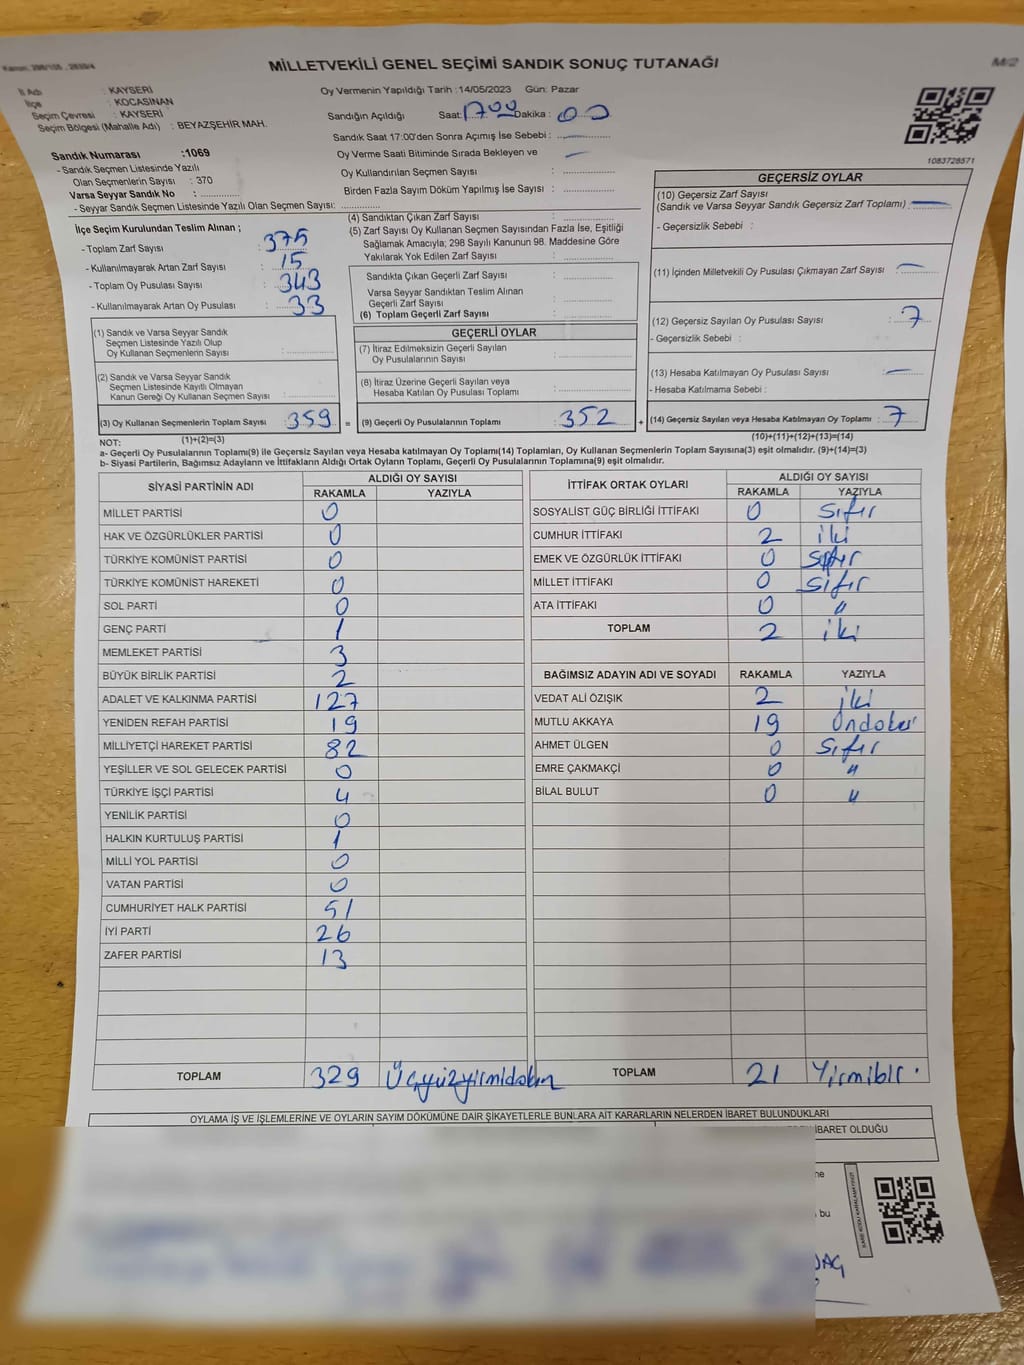 Kanun: 298/105 , 2839/4
MİLLETVEKİLİ GENEL SEÇİMİ SANDIK SONUÇ TUTANAĞI
M/2
İl Adı : KAYSERİ
İlçe : KOCASİNAN
Seçim Çevresi : KAYSERİ
Seçim Bölgesi (Mahalle Adı) : BEYAZŞEHİR MAH.
Oy Vermenin Yapıldığı Tarih :14/05/2023 Gün: Pazar
Sandığın Açıldığı Saat: 17 00 Dakika : 00
Sandık Saat 17:00'den Sonra Açımış İse Sebebi : —
Oy Verme Saati Bitiminde Sırada Bekleyen ve —
Oy Kullandırılan Seçmen Sayısı :
Birden Fazla Sayım Döküm Yapılmış İse Sayısı :
1083728571
Sandık Numarası :1069
- Sandık Seçmen Listesinde Yazılı
Olan Seçmenlerin Sayısı : 370
Varsa Seyyar Sandık No :
- Seyyar Sandık Seçmen Listesinde Yazılı Olan Seçmen Sayısı:
İlçe Seçim Kurulundan Teslim Alınan ;
- Toplam Zarf Sayısı : 375
- Kullanılmayarak Artan Zarf Sayısı : 15
- Toplam Oy Pusulası Sayısı : 343
- Kullanılmayarak Artan Oy Pusulası : 33
(1) Sandık ve Varsa Seyyar Sandık
Seçmen Listesinde Yazılı Olup
Oy Kullanan Seçmenlerin Sayısı :
(2) Sandık ve Varsa Seyyar Sandık
Seçmen Listesinde Kayıtlı Olmayan
Kanun Gereği Oy Kullanan Seçmen Sayısı :
(3) Oy Kullanan Seçmenlerin Toplam Sayısı : 359 =
(4) Sandıktan Çıkan Zarf Sayısı :
(5) Zarf Sayısı Oy Kullanan Seçmen Sayısından Fazla İse, Eşitliği
Sağlamak Amacıyla; 298 Sayılı Kanunun 98. Maddesine Göre
Yakılarak Yok Edilen Zarf Sayısı :
Sandıkta Çıkan Geçerli Zarf Sayısı :
Varsa Seyyar Sandıktan Teslim Alınan
Geçerli Zarf Sayısı :
(6) Toplam Geçerli Zarf Sayısı :
GEÇERLİ OYLAR
(7) İtiraz Edilmeksizin Geçerli Sayılan
Oy Pusulalarının Sayısı :
(8) İtiraz Üzerine Geçerli Sayılan veya
Hesaba Katılan Oy Pusulası Toplamı :
(9) Geçerli Oy Pusulalarının Toplamı : 352 +
GEÇERSİZ OYLAR
(10) Geçersiz Zarf Sayısı
(Sandık ve Varsa Seyyar Sandık Geçersiz Zarf Toplamı) : —
- Geçersizlik Sebebi :
(11) İçinden Milletvekili Oy Pusulası Çıkmayan Zarf Sayısı : —
(12) Geçersiz Sayılan Oy Pusulası Sayısı : 7
- Geçersizlik Sebebi :
(13) Hesaba Katılmayan Oy Pusulası Sayısı : —
- Hesaba Katılmama Sebebi :
(14) Geçersiz Sayılan veya Hesaba Katılmayan Oy Toplamı : 7
NOT: (1)+(2)=(3) (10)+(11)+(12)+(13)=(14)
a- Geçerli Oy Pusulalarının Toplamı(9) ile Geçersiz Sayılan veya Hesaba katılmayan Oy Toplamı(14) Toplamları, Oy Kullanan Seçmenlerin Toplam Sayısına(3) eşit olmalıdır. (9)+(14)=(3)
b- Siyasi Partilerin, Bağımsız Adayların ve İttifakların Aldığı Ortak Oyların Toplamı, Geçerli Oy Pusulalarının Toplamına(9) eşit olmalıdır.
SİYASİ PARTİNİN ADI ALDIĞI OY SAYISI
RAKAMLA YAZIYLA
MİLLET PARTİSİ 0
HAK VE ÖZGÜRLÜKLER PARTİSİ 0
TÜRKİYE KOMÜNİST PARTİSİ 0
TÜRKİYE KOMÜNİST HAREKETİ 0
SOL PARTİ 0
GENÇ PARTİ 1
MEMLEKET PARTİSİ 3
BÜYÜK BİRLİK PARTİSİ 2
ADALET VE KALKINMA PARTİSİ 127
YENİDEN REFAH PARTİSİ 19
MİLLİYETÇİ HAREKET PARTİSİ 82
YEŞİLLER VE SOL GELECEK PARTİSİ 0
TÜRKİYE İŞÇİ PARTİSİ 4
YENİLİK PARTİSİ 0
HALKIN KURTULUŞ PARTİSİ 1
MİLLİ YOL PARTİSİ 0
VATAN PARTİSİ 0
CUMHURİYET HALK PARTİSİ 51
İYİ PARTİ 26
ZAFER PARTİSİ 13
TOPLAM 329 Üçyüzyirmidokuz
İTTİFAK ORTAK OYLARI ALDIĞI OY SAYISI
RAKAMLA YAZIYLA
SOSYALİST GÜÇ BİRLİĞİ İTTİFAKI 0 Sıfır
CUMHUR İTTİFAKI 2 iki
EMEK VE ÖZGÜRLÜK İTTİFAKI 0 Sıfır
MİLLET İTTİFAKI 0 Sıfır
ATA İTTİFAKI 0 "
TOPLAM 2 iki
BAĞIMSIZ ADAYIN ADI VE SOYADI RAKAMLA YAZIYLA
VEDAT ALİ ÖZIŞIK 2 iki
MUTLU AKKAYA 19 Ondokuz
AHMET ÜLGEN 0 Sıfır
EMRE ÇAKMAKÇİ 0 "
BİLAL BULUT 0 "
TOPLAM 21 Yirmibir.
OYLAMA İŞ VE İŞLEMLERİNE VE OYLARIN SAYIM DÖKÜMÜNE DAİR ŞİKAYETLERLE BUNLARA AİT KARARLARIN NELERDEN İBARET BULUNDUKLARI
İBARET OLDUĞU
ne
bu